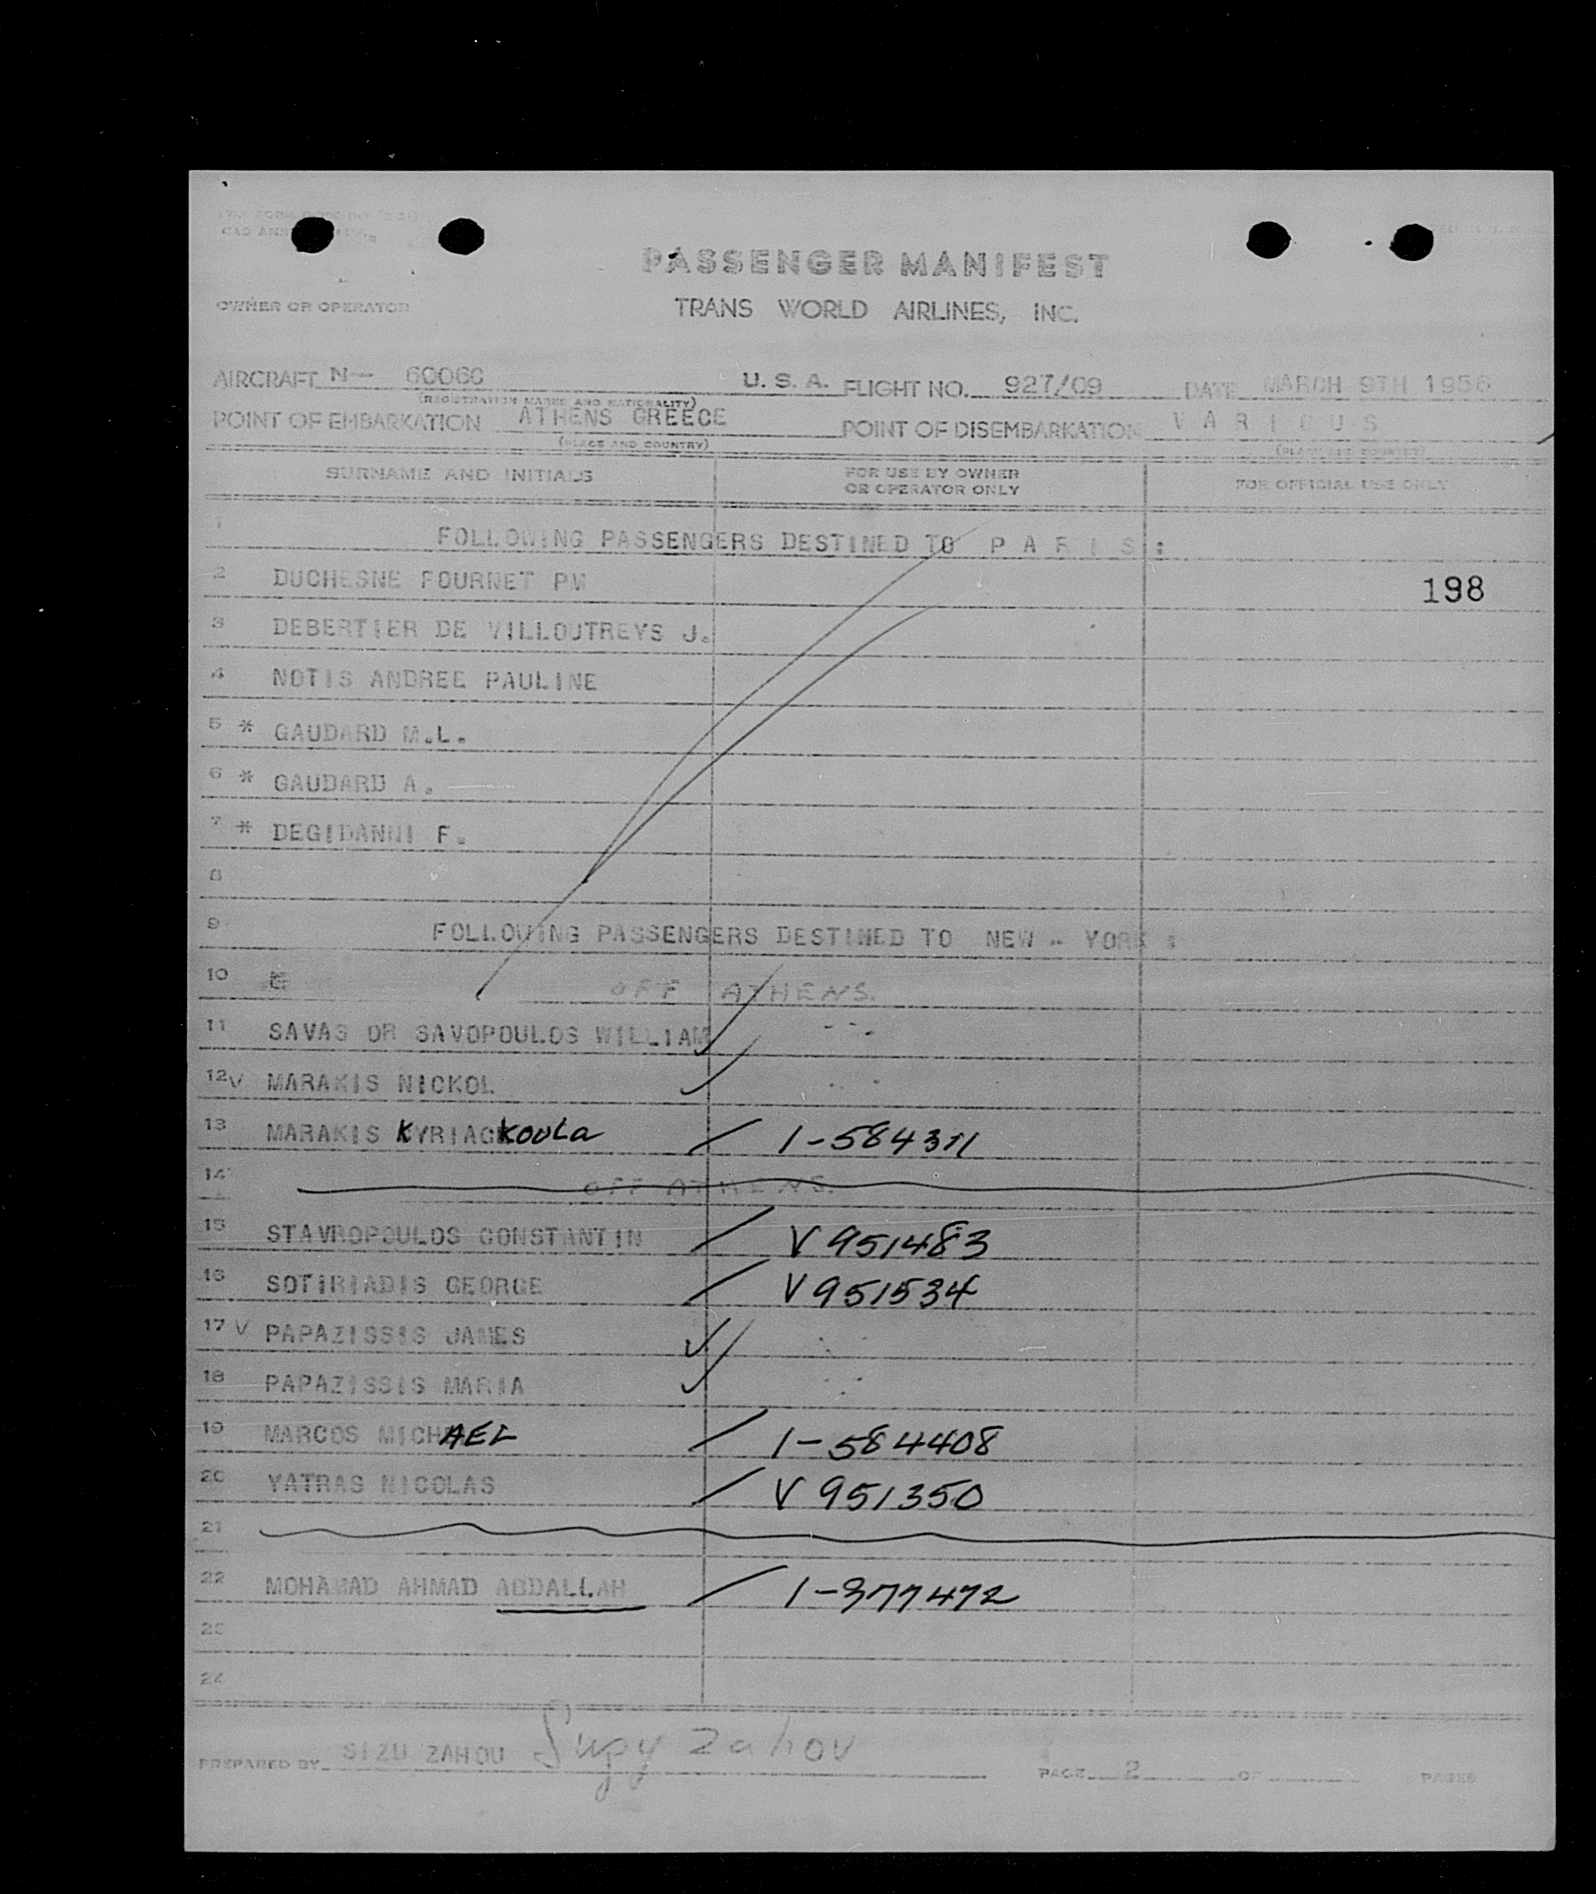 PASSENGER MANIFEST
OWNER OR OPERATOR TRANS WORLD AIRLINES, INC.
AIRCRAFT N- 6006C U. S. A. FLIGHT NO. 927/09 DATE MARCH 9TH 1956
(REGISTRATION MARKS AND NATIONALITY)
POINT OF EMBARKATION ATHENS GREECE POINT OF DISEMBARKATION V A R I O U S
(PLACE AND COUNTRY) (PLACE AND COUNTRY)
SURNAME AND INITIALS FOR USE BY OWNER OR OPERATOR ONLY FOR OFFICIAL USE ONLY
1 FOLLOWING PASSENGERS DESTINED TO P A R I S :
2 DUCHESNE FOURNET PM 198
3 DEBERTIER DE VILLOUTREYS J.
4 NOTIS ANDREE PAULINE
5 * GAUDARD M.L.
6 * GAUDARD A.
7 * DEGIDANNI F.
8
9 FOLLOWING PASSENGERS DESTINED TO NEW - YORK :
10 OFF ATHENS.
11 SAVAS OR SAVOPOULOS WILLIAM
12 V MARAKIS NICKOL
13 MARAKIS KYRIACKOULA 1-584311
14 OFF ATHENS.
15 STAVROPOULOS CONSTANTIN V 951483
16 SOTIRIADIS GEORGE V 951534
17 V PAPAZISSIS JAMES
18 PAPAZISSIS MARIA
19 MARCOS MICHAEL 1-584408
20 YATRAS NICOLAS V 951350
21
22 MOHAMAD AHMAD ABDALLAH 1-377472
23
24
PREPARED BY SIZU ZAHOU Suzy Zahou PAGE 2 OF PAGES